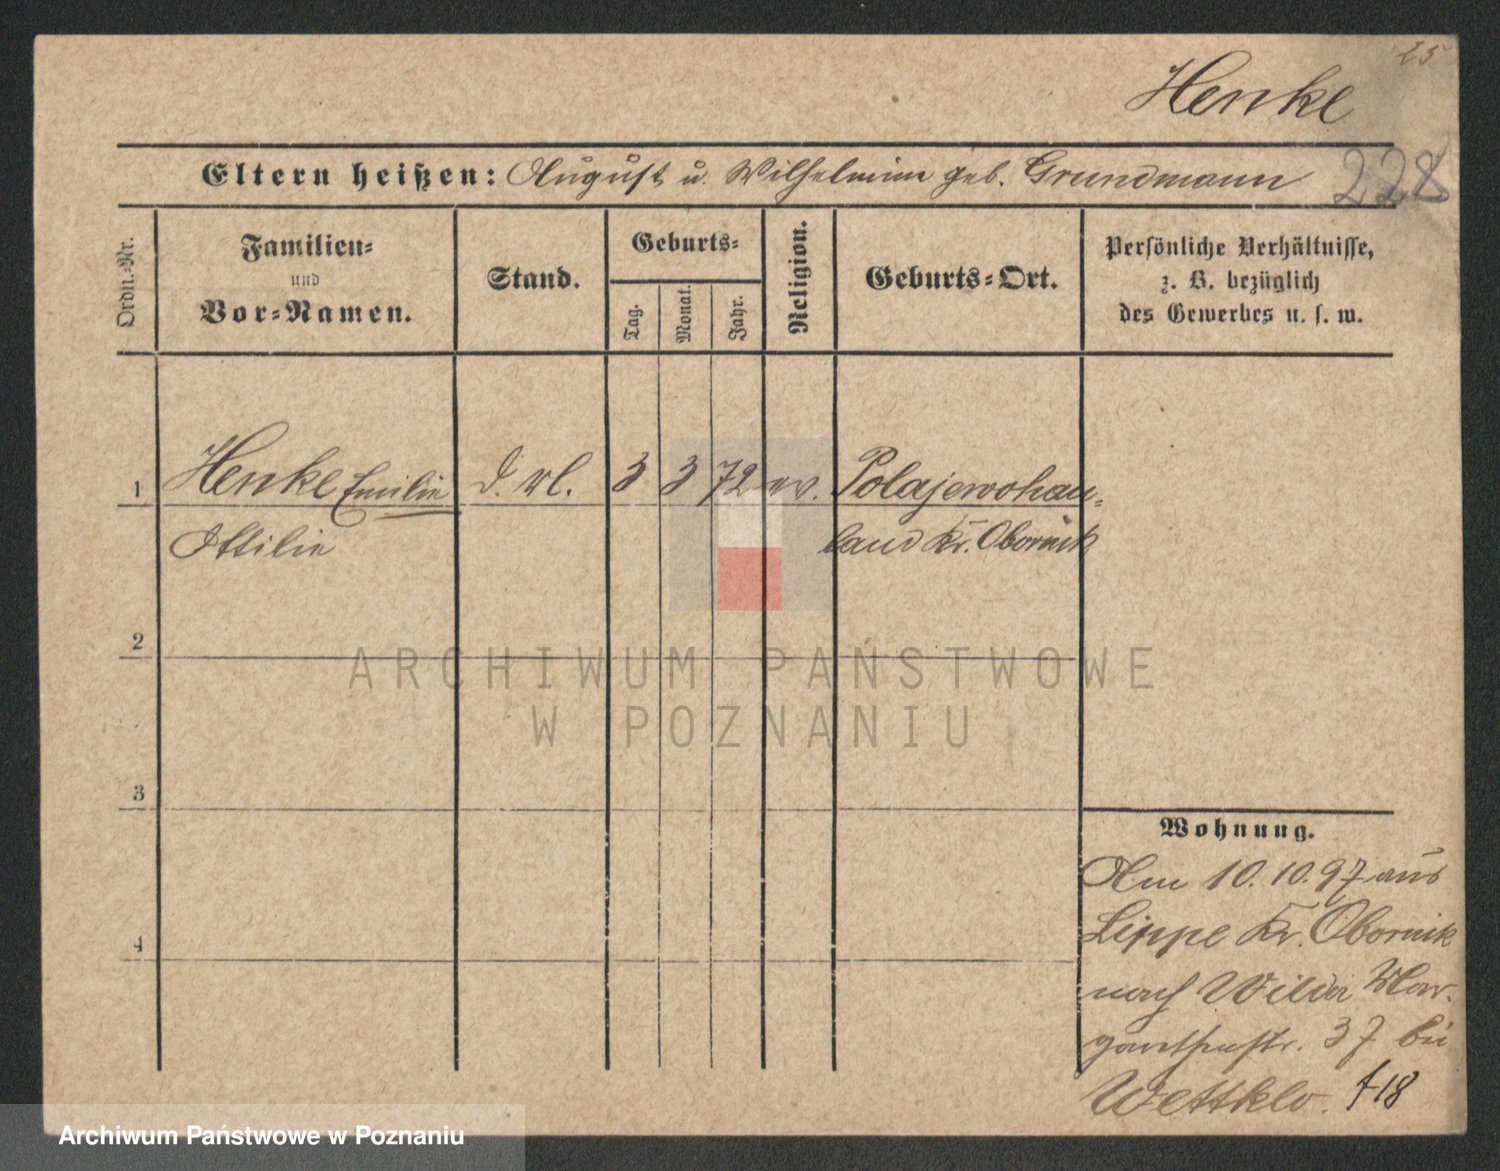 25
Henke
228
Eltern heißen: August u. Wilhelmine geb. Grundmann
Ordn.-Nr.
Familien-
und
Vor-Namen.
Stand.
Geburts-
Tag.
Monat.
Jahr.
Religion.
Geburts-Ort.
Persönliche Verhältnisse,
z. B. bezüglich
des Gewerbes u. s. w.
1 Henke Emilie d. vl. 3 3 72 ev. Polajewohau-
Ottilie land Kr. Obornik
2
ARCHIWUM PAŃSTWOWE
W POZNANIU
3
Wohnung.
Am 10.10.97 aus
4 Lippe Kr. Obornik
nach Wilda
37 bei
f18
Archiwum Państwowe w Poznaniu